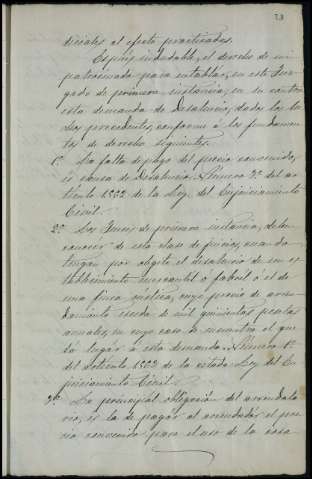 diciales al efecto practicados.
Es pues indudable, el derecho de mi
patrocinado para entablar, en este Juz-
gado de primera instancia, en su contra
esta demanda de desahucio, dados los he-
chos precedentes, conforme á los fundamen-
tos de derecho siguientes.
1º La falta de pago del precio convenido,
es causa de desahucio. Número 2º del ar-
tículo 1562 de la Ley del Enjuiciamiento
Civil.
2º Los Jueces de primera instancia, deben
conocer de esta clase de juicios, cuando
tengan por objeto el desahucio de un es-
tablecimiento mercantil ó fabril ó el de
una finca rústica, cuyo precio de arren-
damiento esceda de mil quinientas pesetas
anuales, en cuyo caso se encuentra el que
dá lugar á esta demanda. Número 1º
del artículo 1563 de la citada Ley del En-
juiciamiento Civil.
3º La principal obligación del arrendata-
rio, es la de pagar al arrendador el pre-
cio convenido para el uso de la cosa